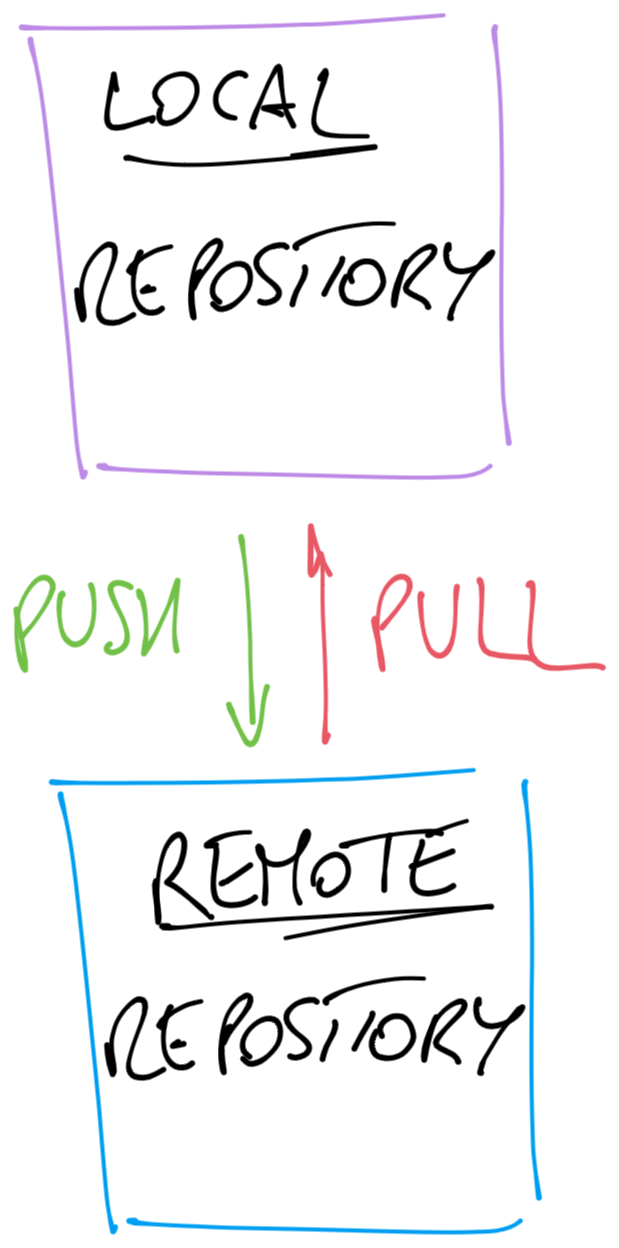 LOCAL
REPOSITORY
PUSH
PULL
REMOTE
REPOSITORY